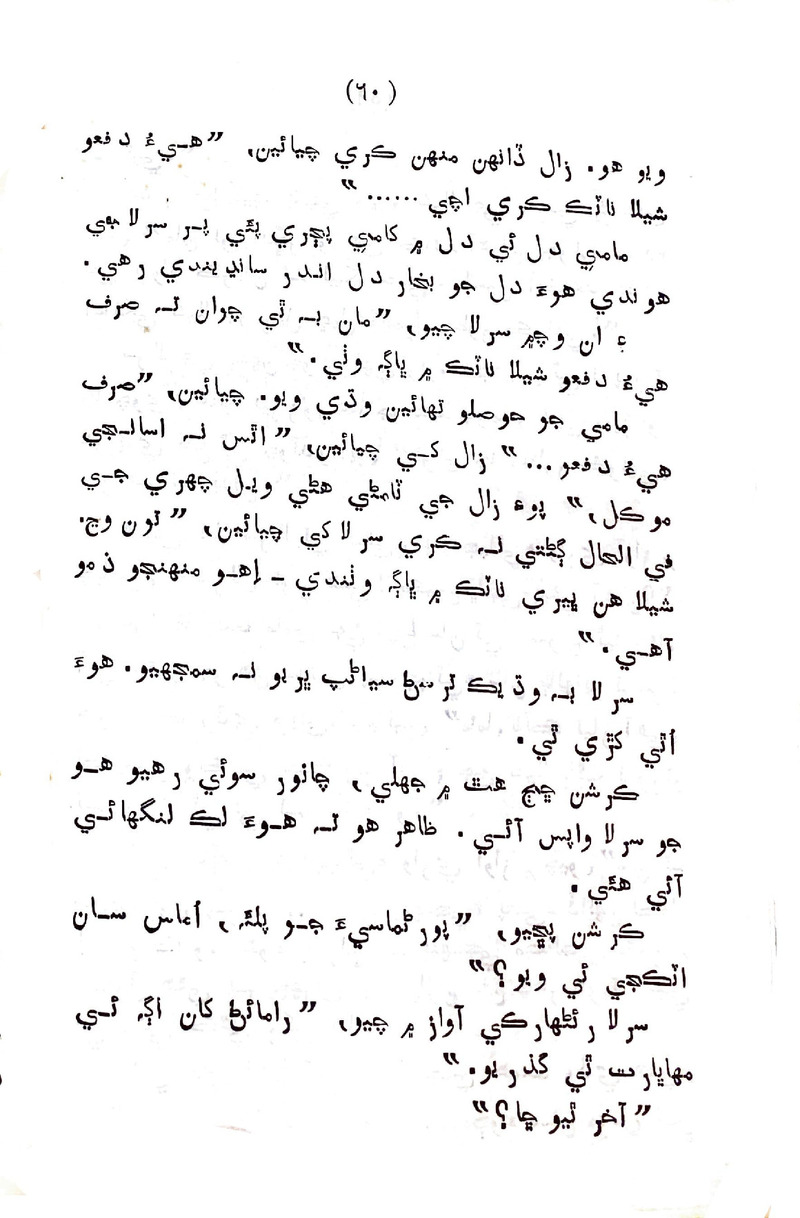 (٦٠)
ويو هو. زال ڏانهن منهن ڪري چيائين، ”هيءُ دفعو
شيلا ناٽڪ ڪري اچي ......“
مامي دل ئي دل ۾ ڪامي پڄري پئي پر سرلا جي
هوندي هوءَ دل جو بخار دل اندر سانڍيندي رهي.
۽ ان وچ۾ سرلا چيو، ”مان به ٿي چوان ته صرف
هيءُ دفعو شيلا ناٽڪ ۾ ڀاڱه وٺي.“
مامي جو حوصلو تهائين وڌي ويو. چيائين، ”صرف
هيءُ دفعو...“ زال کي چيائين، ”اٿس نه اسانجي
موڪل،“ پوءِ زال جي ٽامڻي هڻي ويل چهري جي
في الحال ڳڻتي نه ڪري سرلا کي چيائين، ”تون وڃ.
شيلا هن ڀيري ناٽڪ ۾ ڀاڱه وٺندي - اِهو منهنجو ذمو
آهي.“
سرلا به وڌيڪ ترسڻ سياڻپ ڀريو نه سمجهيو. هوءَ
اُٿي کڙي ٿي.
ڪرشن ڇڄ هٿ ۾ جهلي، چانور سوئي رهيو هو
جو سرلا واپس آئي. ظاهر هو ته هوءَ لڪ لنگهائي
آئي هئي.
ڪرشن پڇيو، ”پورڻماسيءَ جو پلئه، اُماس سان
اٽڪجي ئي ويو؟“
سرلا رئڻهارڪي آواز ۾ چيو، ”رامائڻ کان اڳه ئي
مهاڀارت ٿي گذريو.“
”آخر ٿيو ڇا؟“